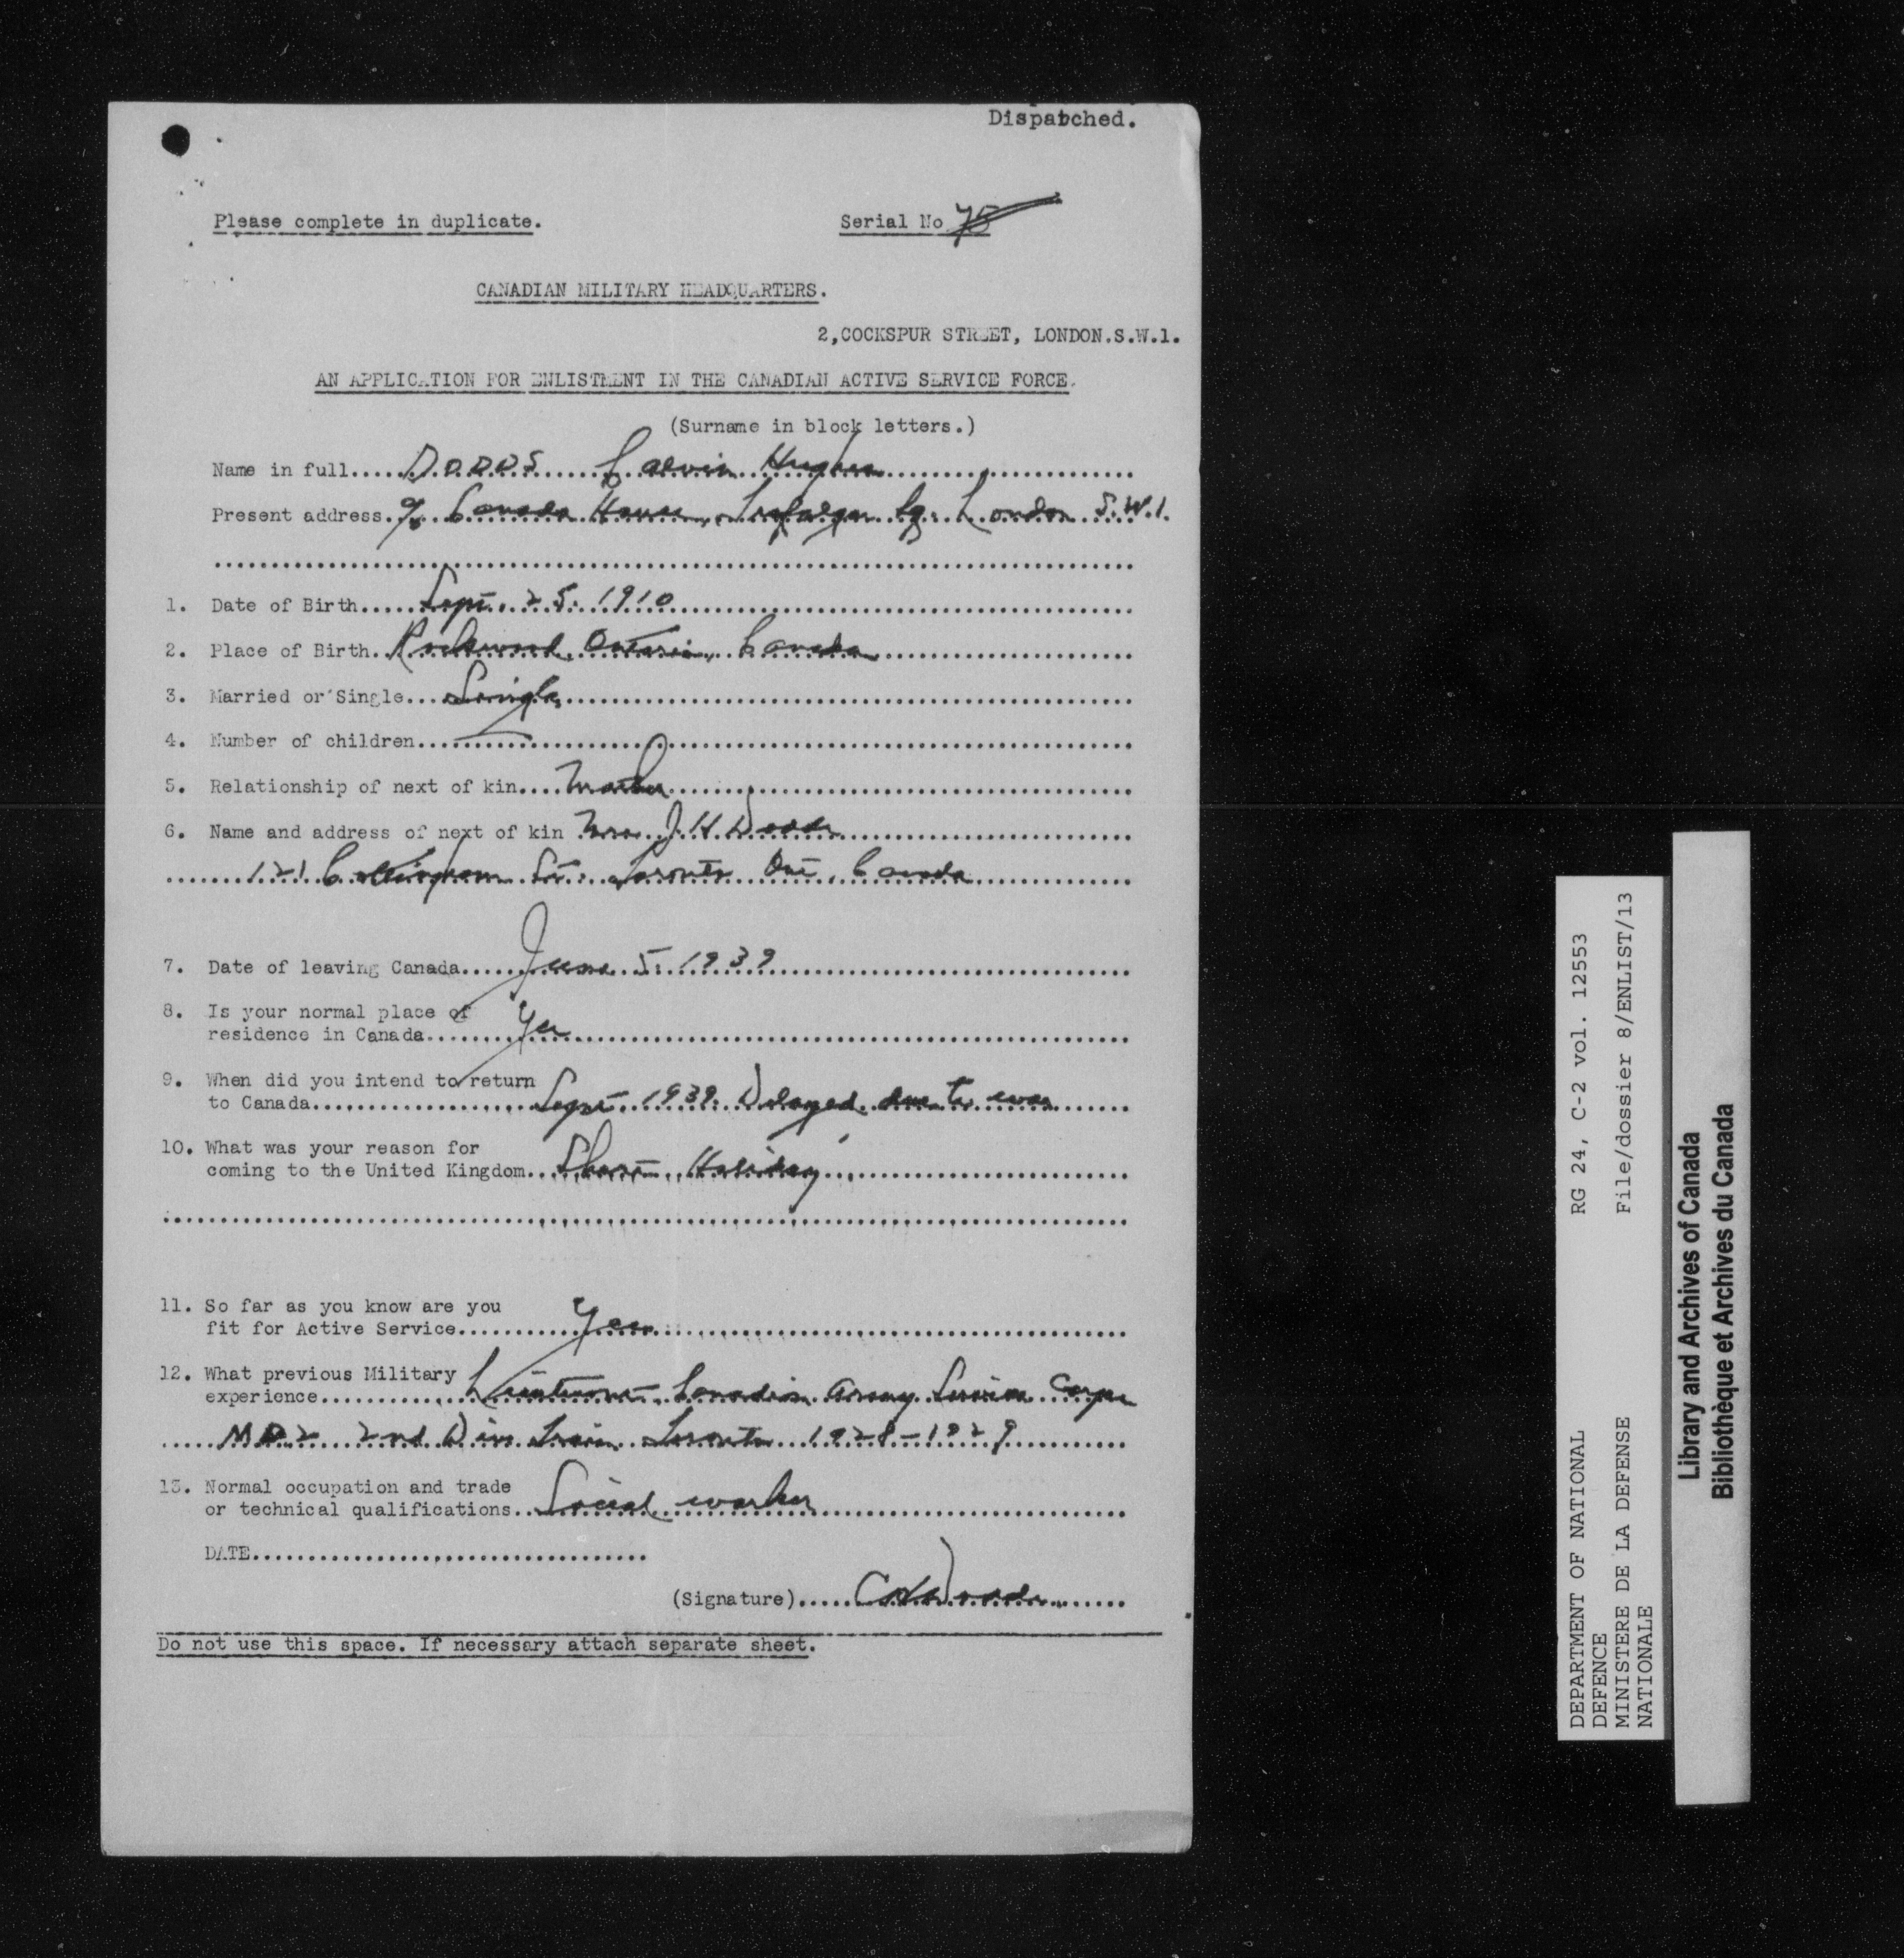 Dispatched.
Please complete in duplicate. Serial No 75
CANADIAN MILITARY HEADQUARTERS.
2,COCKSPUR STREET, LONDON.S.W.1.
AN APPLICATION FOR ENLISTMENT IN THE CANADIAN ACTIVE SERVICE FORCE.
(Surname in block letters.)
Name in full.....DODDS Calvin Hughes
Present address. c/o Canada House, Trafalgar Sq. London S.W.1.
1. Date of Birth.....Sept. 25. 1910
2. Place of Birth..Rockwood, Ontario, Canada
3. Married or Single...Single
4. Number of children
5. Relationship of next of kin....Mother
6. Name and address of next of kin Mrs. J. H. Dodds
121 Cottingham St. Toronto Ont. Canada
7. Date of leaving Canada......June 5. 1939
8. Is your normal place of
residence in Canada.......Yes
9. When did you intend to return
to Canada....................Sept 1939. Delayed due to war
10. What was your reason for
coming to the United Kingdom...Short Holiday
11. So far as you know are you
fit for Active Service..........Yes
12. What previous Military
experience.............Lieutenant, Canadian Army Service Corps
M D 2 2nd Div Train Toronto 1928-1929
13. Normal occupation and trade
or technical qualifications..Social worker
DATE
(Signature).....CHDodds
Do not use this space. If necessary attach separate sheet.
DEPARTMENT OF NATIONAL DEFENCE RG 24, C-2 vol. 12553
MINISTERE DE LA DEFENSE NATIONALE File/dossier 8/ENLIST/13
Library and Archives of Canada
Bibliothèque et Archives du Canada